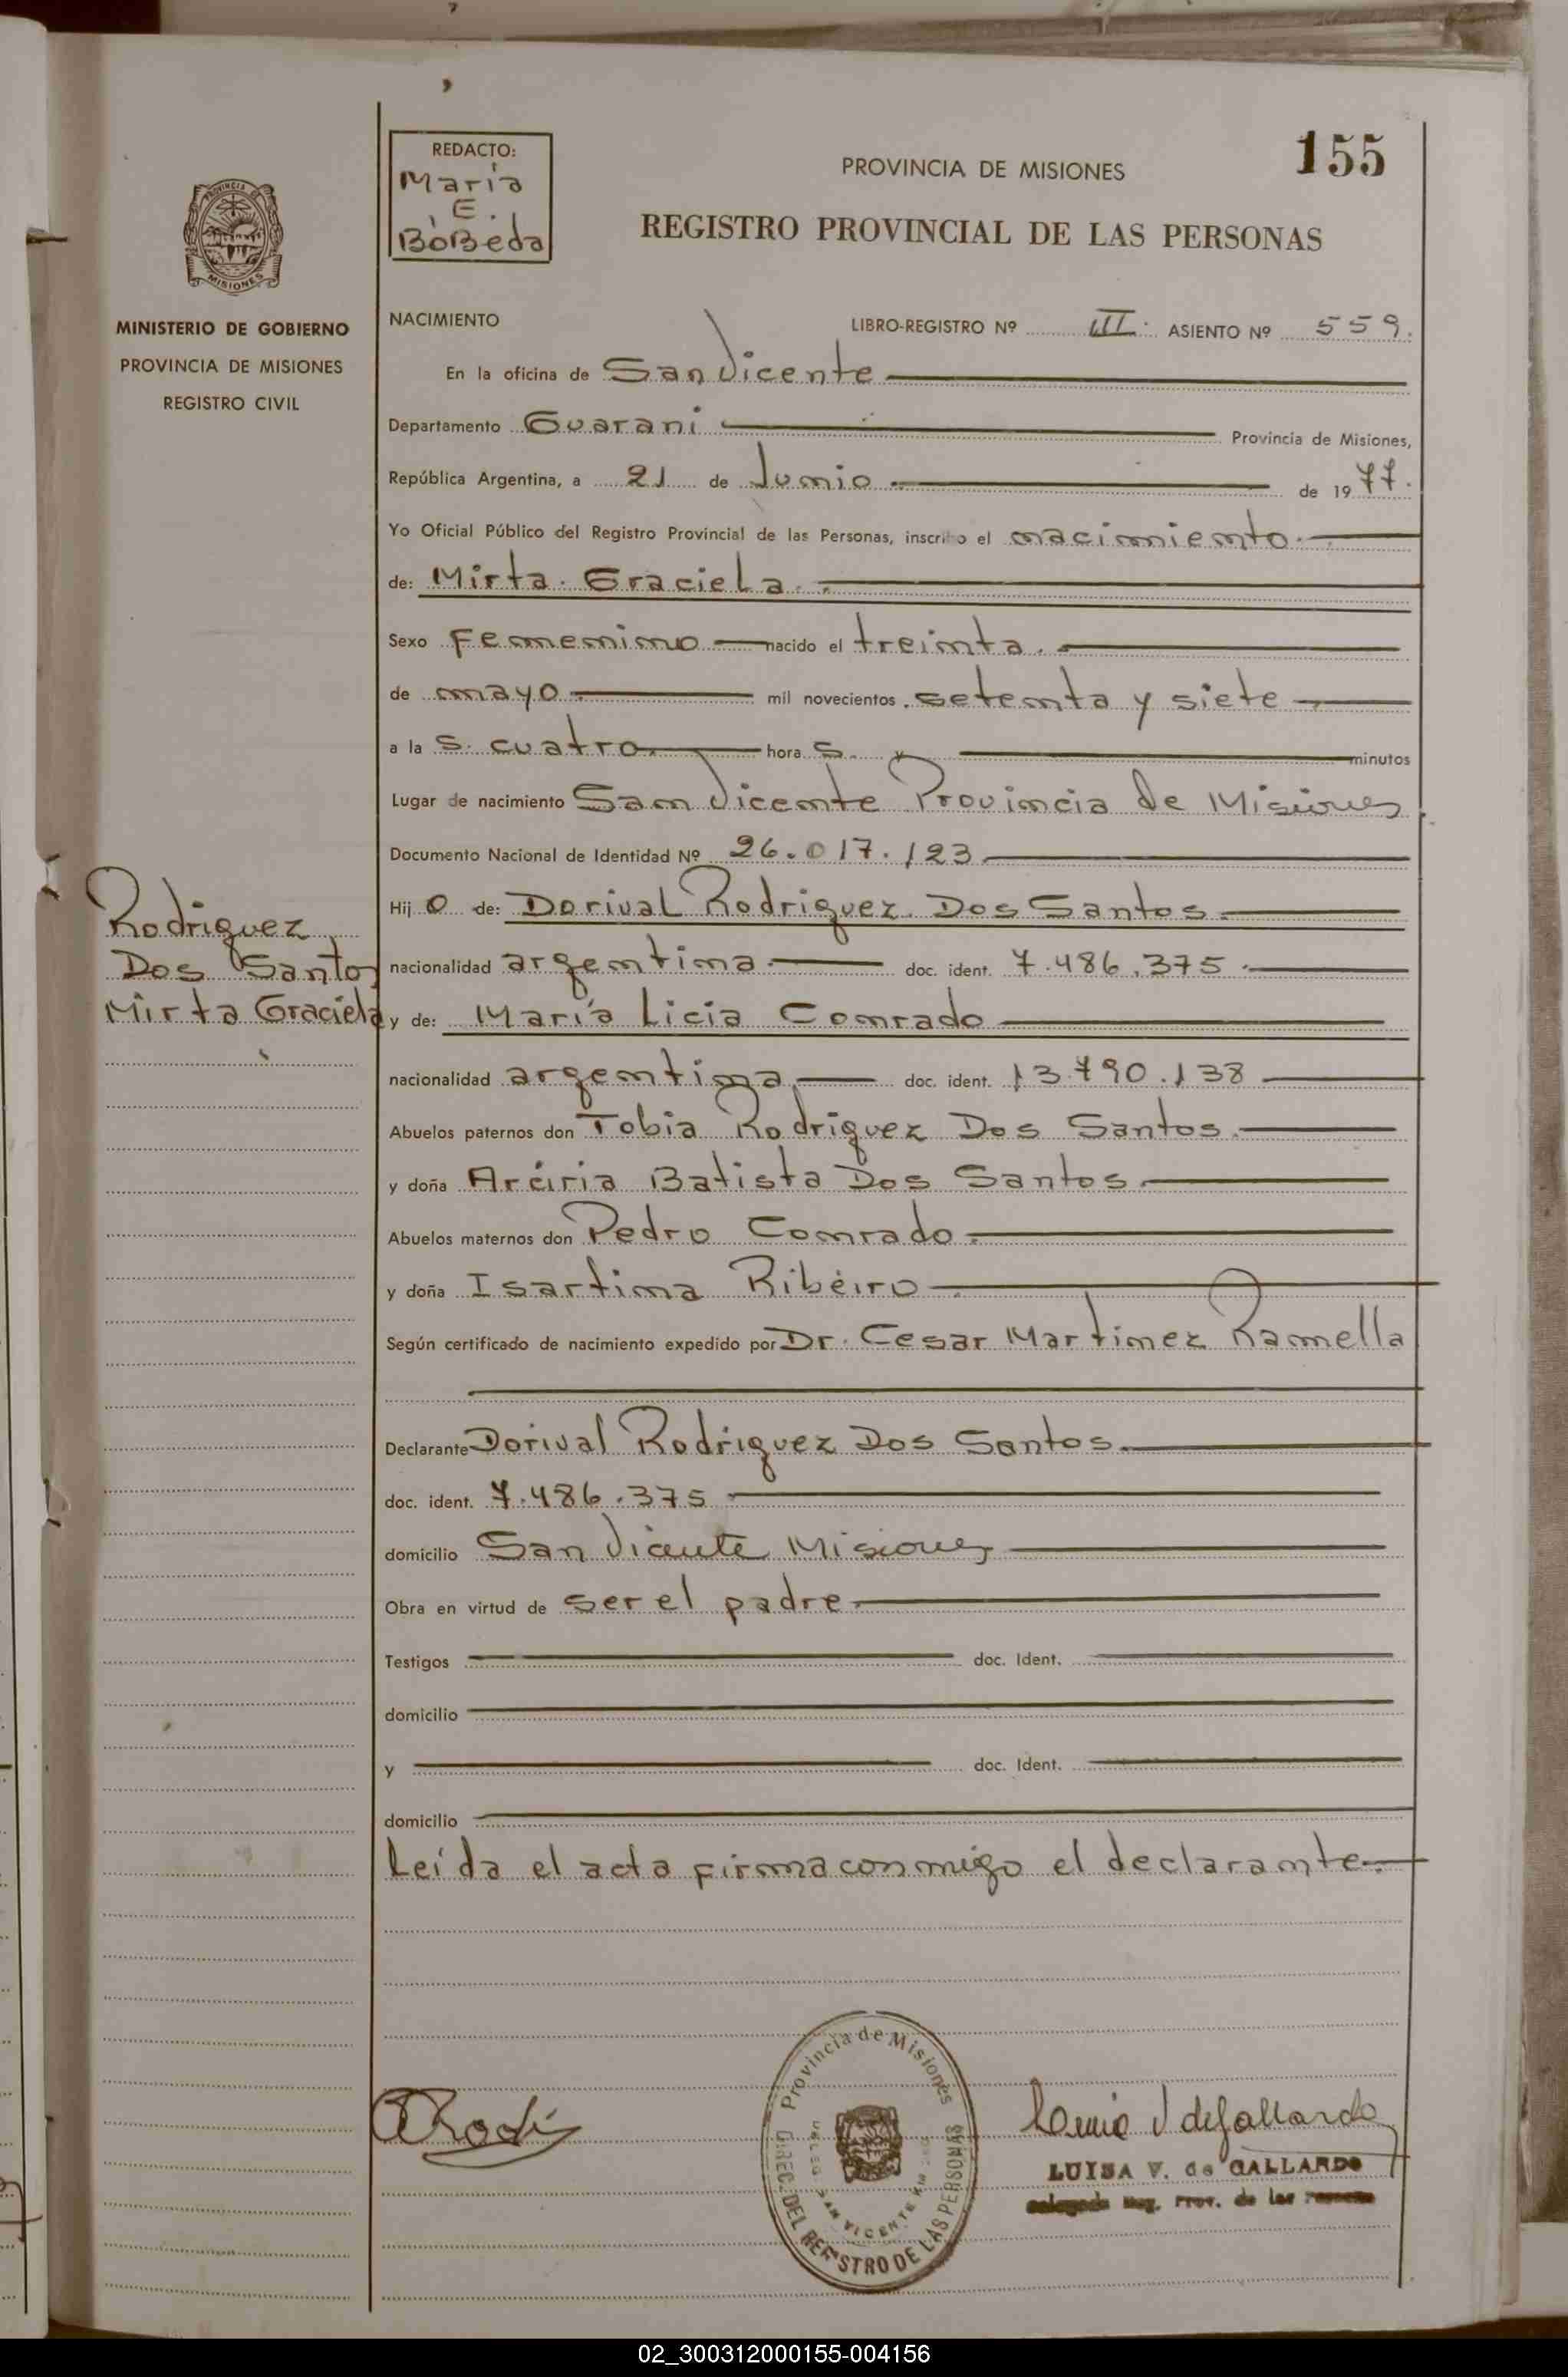 155
REDACTO:
María
E.
BóBeda
PROVINCIA DE MISIONES
REGISTRO PROVINCIAL DE LAS PERSONAS
PROVINCIA DE
MISIONES
MINISTERIO DE GOBIERNO
PROVINCIA DE MISIONES
REGISTRO CIVIL
NACIMIENTO LIBRO-REGISTRO Nº III. ASIENTO Nº 559.
En la oficina de San Vicente
Departamento Guarani Provincia de Misiones,
República Argentina, a 21 de Junio de 1977.
Yo Oficial Público del Registro Provincial de las Personas, inscribo el nacimiento.
de: Mirta Graciela.
Sexo Femenino nacido el treinta.
de mayo mil novecientos setenta y siete
a las cuatro. horas y minutos
Lugar de nacimiento San Vicente Provincia de Misiones
Documento Nacional de Identidad Nº 26.017.123
Hijo de: Dorival Rodriguez Dos Santos.
nacionalidad argentina doc. ident. 7.486.375.
y de: María Licia Conrado
nacionalidad argentina doc. ident. 13.790.138
Abuelos paternos don Tobia Rodriguez Dos Santos.
y doña Arciria Batista Dos Santos
Abuelos maternos don Pedro Conrado.
y doña Isartina Ribeiro
Según certificado de nacimiento expedido por Dr. Cesar Martinez Ramella
Declarante Dorival Rodriguez Dos Santos
doc. ident. 7.486.375
domicilio San Vicente Misiones
Obra en virtud de ser el padre
Testigos doc. Ident.
domicilio
y doc. Ident.
domicilio
Leída el acta firma conmigo el declarante.
Rodriguez
Dos Santos
Mirta Graciela
Provincia de Misiones
DIREC. DEL REGISTRO DE LAS PERSONAS
SAN VICENTE
LUISA V. de GALLARDO
Reg. Prov. de las
02_300312000155-004156